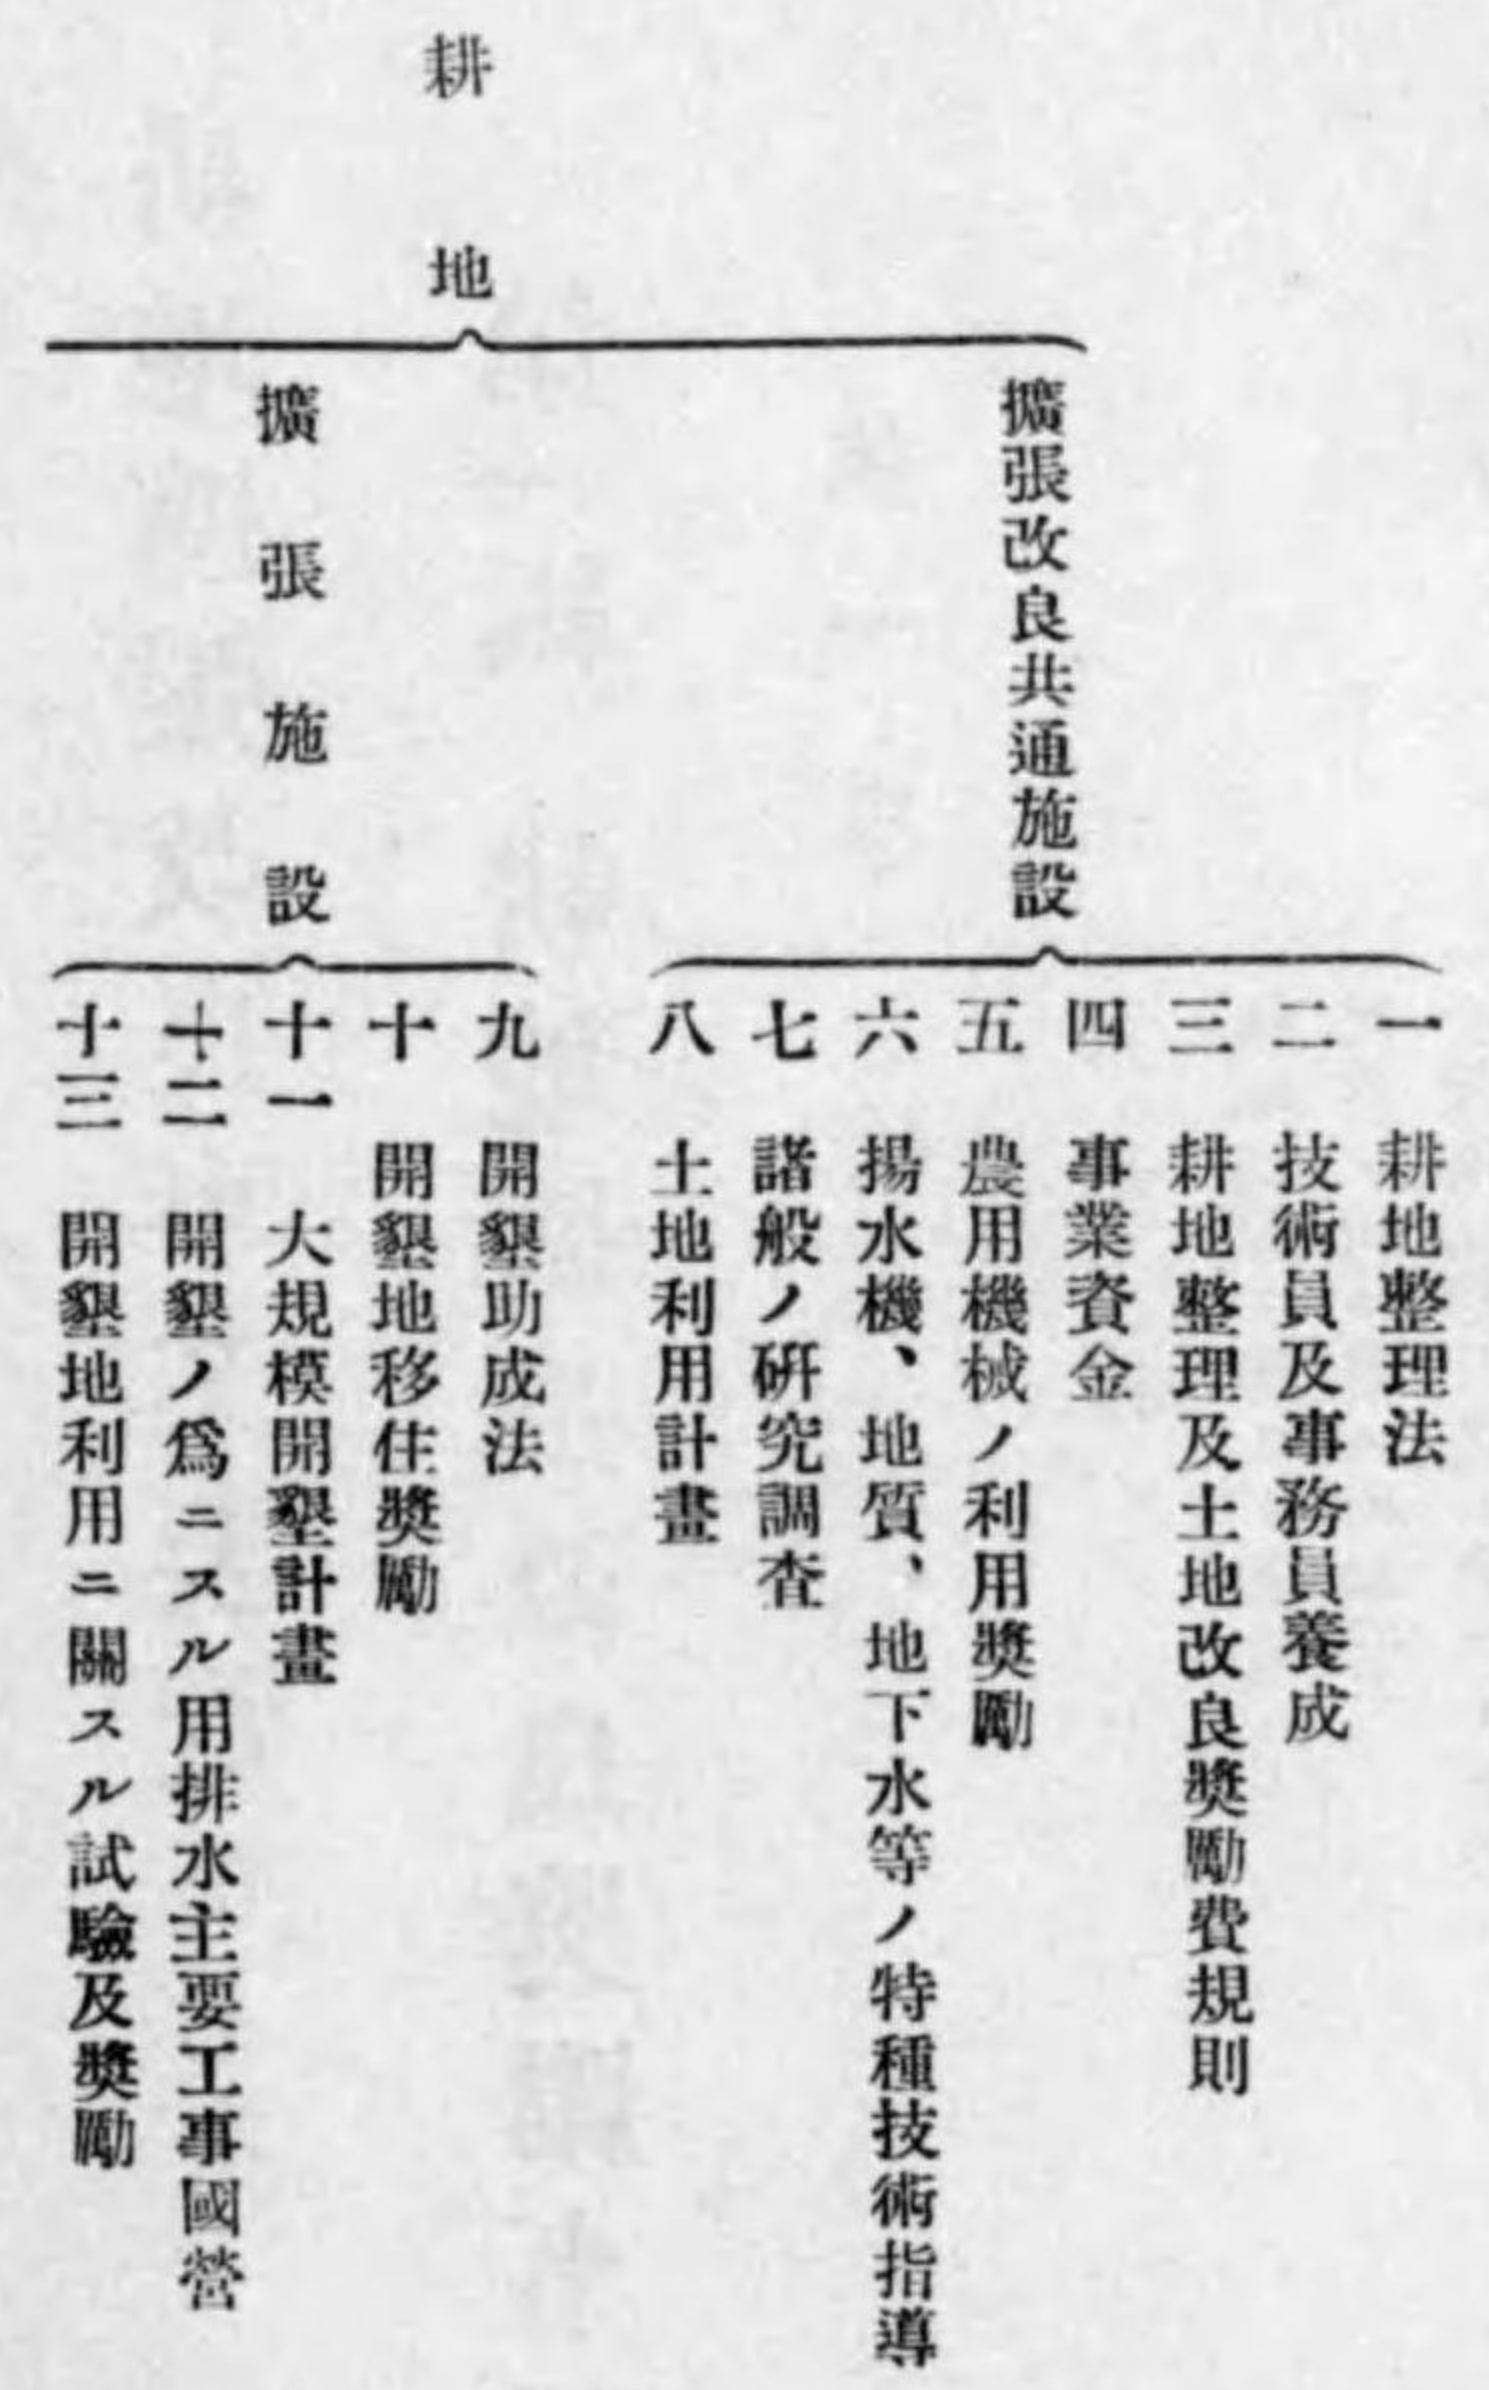 耕地
擴張改良共通施設
一 耕地整理法
二 技術員及事務員養成
三 耕地整理及土地改良獎勵費規則
四 事業資金
五 農用機械ノ利用獎勵
六 揚水機、地質、地下水等ノ特種技術指導
七 諸般ノ研究調査
八 土地利用計畫
擴張施設
九 開墾助成法
十 開墾地移住獎勵
十一 大規模開墾計畫
十二 開墾ノ爲ニスル用排水主要工事國營
十三 開墾地利用ニ關スル試驗及獎勵